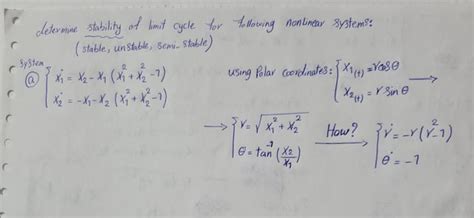 determine stability of limit cycle for following nonlinear systems:
(stable, unstable, semi-stable)
system
ⓐ { ẋ₁ = x₂ - x₁ (x₁² + x₂² - 1)
ẋ₂ = -x₁ - x₂ (x₁² + x₂² - 1)
using Polar coordinates: { x₁(t) = r cosθ
x₂(t) = r sinθ →
→ { r = √(x₁² + x₂²)
θ = tan⁻¹(x₂/x₁)
How? →
{ ṙ = -r(r² - 1)
θ̇ = -1